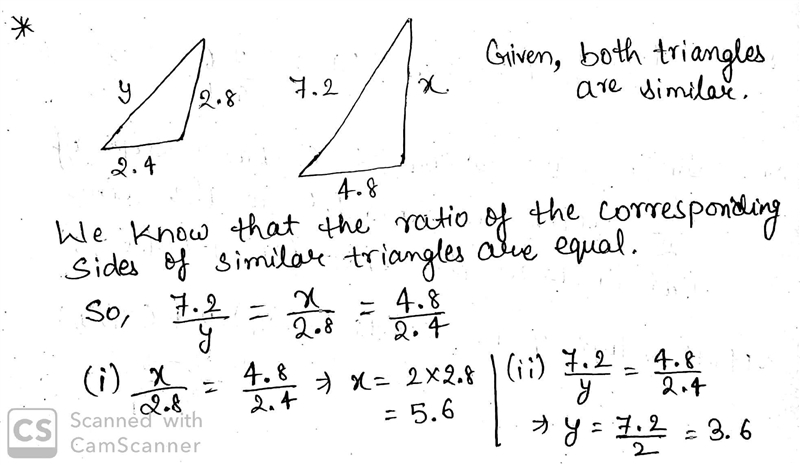 *
y
2.8
2.4
7.2
x
4.8
Given, both triangles
are similar.
We know that the ratio of the corresponding
sides of similar triangles are equal.
So, 7.2/y = x/2.8 = 4.8/2.4
(i) x/2.8 = 4.8/2.4 ⇒ x = 2×2.8
= 5.6
(ii) 7.2/y = 4.8/2.4
⇒ y = 7.2/2 = 3.6
CS Scanned with
CamScanner